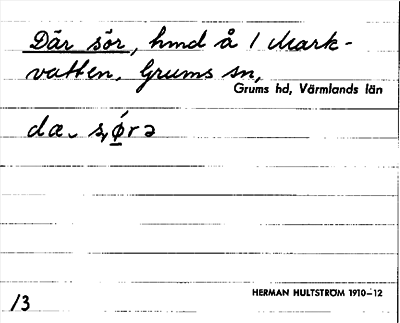 Där sör, hmd å 1 Mark-
vatten, Grums sn,
Grums hd, Värmlands län
dæ sørə
HERMAN HULTSTRÖM 1910–12
13